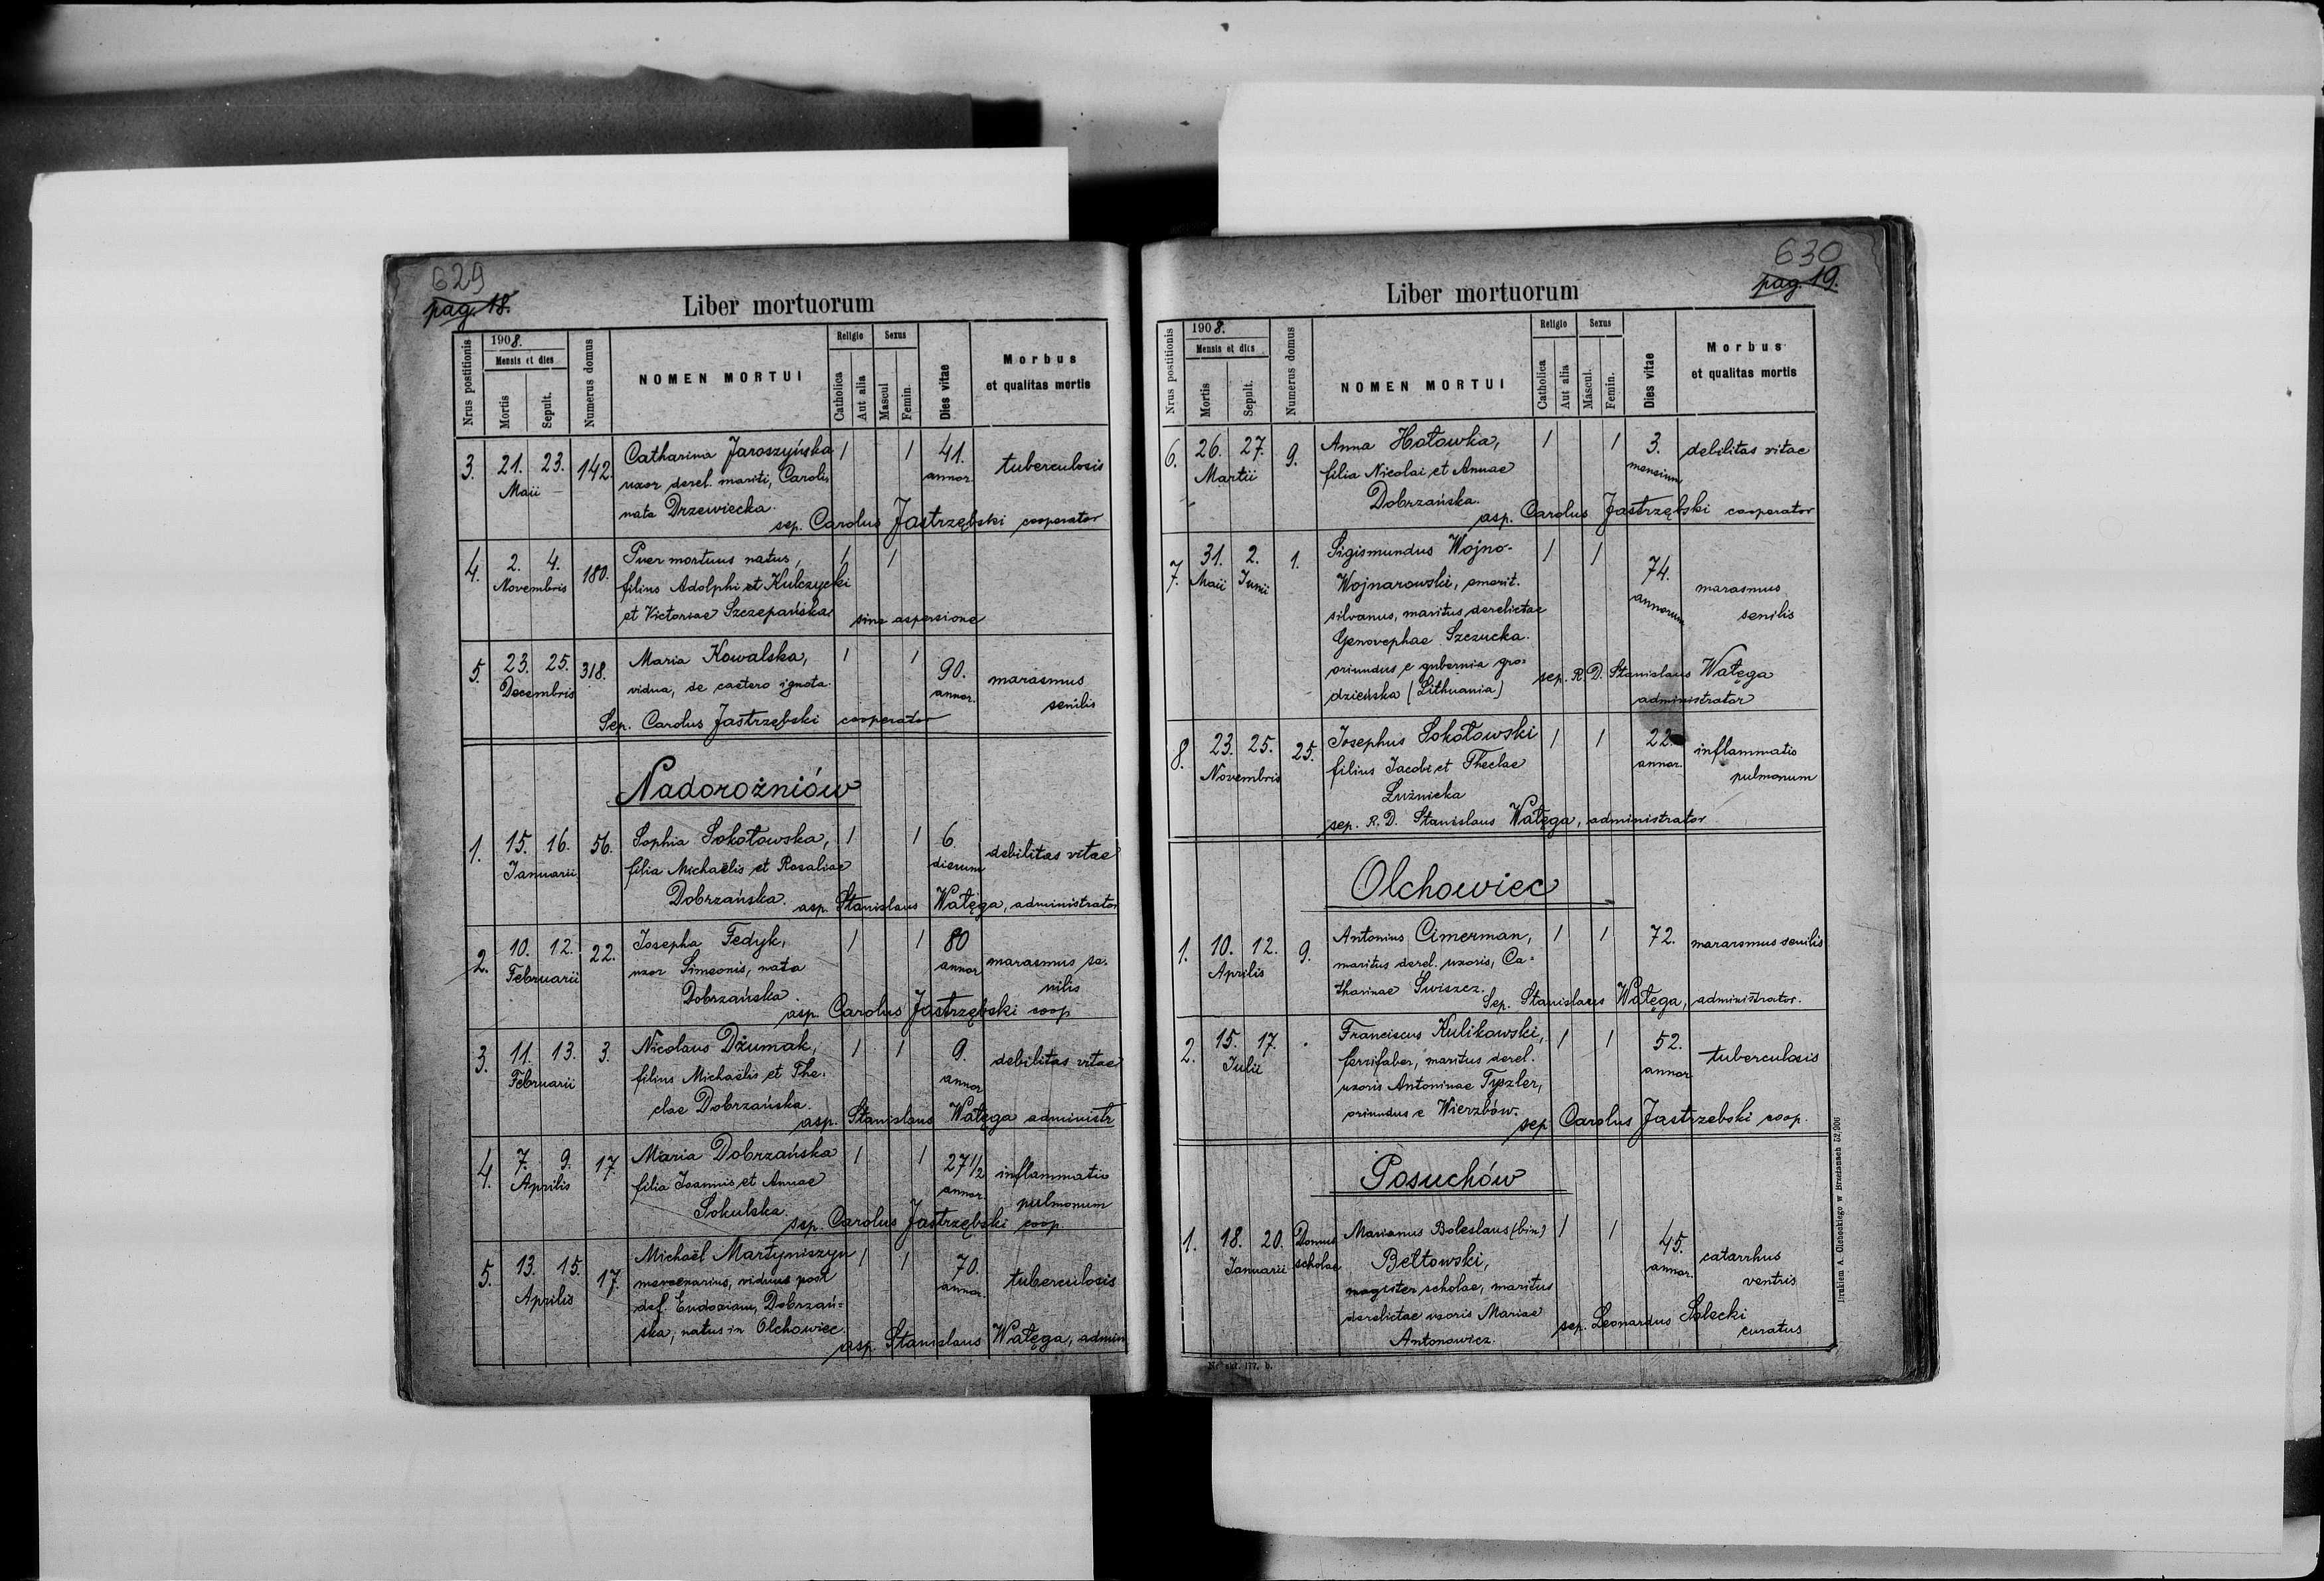 629
pag. 18.
Liber mortuorum
Nrus postitionis
1908.
Mensis et dies
Mortis
Sepult.
Numerus domus
NOMEN MORTUI
Religio
Catholica
Aut alia
Sexus
Mascul
Femin.
Dies vitae
Morbus
et qualitas mortis
3. 21. 23. 142. Catharina Jaroszyńska 1 1 41. tuberculosis
Maii uxor derel. mariti, Caroli, annor.
nata Drzewiecka.
sep. Carolus Jastrzębski cooperator
4. 2. 4. 180. Puer mortuus natus, 1 1
Novembris filius Adolphi et Kulczycki
et Victoriae Szczepańska sine aspersione
5. 23. 25. 318. Maria Kowalska, 1 1 90. marasmus
Decembris vidua, de caetero ignota. annor. senilis
Sep. Carolus Jastrzębski cooperator
Nadorożniów
1. 15. 16. 56. Sophia Sokołowska, 1 1 6. debilitas vitae
Januarii filia Michaëlis et Rosaliae dierum
Dobrzańska. asp. Stanislaus Wałęga, administrator
2. 10. 12. 22. Josepha Fedyk, 1 1 80 marasmus se-
Februarii uxor Simeonis, nata annor nilis
Dobrzańska.
asp. Carolus Jastrzębski coop
3. 11. 13. 3. Nicolaus Dżumak, 1 1 9. debilitas vitae
Februarii filius Michaëlis et The- annor
clae Dobrzańska.
asp. Stanislaus Wałęga administr
4. 7. 9. 17. Maria Dobrzańska 1 1 27 1/2 inflammatio
Aprilis filia Joannis et Annae annor. pulmonum
Sokulska.
sep. Carolus Jastrzębski coop.
5. 13. 15. 17. Michaël Martyniszyn 1 1 70. tuberculosis
Aprilis mercenarius, viduus post annor.
def. Eudoxiam, Dobrzań=
ska, natus in Olchowiec.
asp. Stanislaus Wałęga, admin
630
pag. 19.
Liber mortuorum
Nrus postitionis
1908.
Mensis et dies
Mortis
Sepult.
Numerus domus
NOMEN MORTUI
Religio
Catholica
Aut alia
Sexus
Mascul.
Femin.
Dies vitae
Morbus
et qualitas mortis
6. 26. 27. 9. Anna Hołowka, 1 1 3. debilitas vitae
Martii filia Nicolai et Annae mensium
Dobrzańska.
asp. Carolus Jastrzębski cooperator
7. 31. 2. 1. Sigismundus Wojno- 1 1 74.
Maii Junii Wojnarowski, emerit. annorum marasmus
silvanus, maritus derelictae senilis
Genovephae Szczucka.
oriundus e gubernia gro=
dzieńska (Lithuania)
sep. R. D. Stanislaus Wałęga
administrator
8. 23. 25. 25. Josephus Sokołowski 1 1 22. inflammatio
Novembris filius Jacobi et Theclae annor. pulmonum
Łużnicka
sep. R. D. Stanislaus Wałęga, administrator
Olchowiec
1. 10. 12. 9. Antonius Cimerman, 1 1 72. mararsmus senilis
Aprilis maritus derel. uxoris, Ca=
tharinae Świszcz.
Sep. Stanislaus Wałęga, administrator.
2. 15. 17. Franciscus Kulikowski, 1 1 52. tuberculosis
Julii ferrifaber, maritus derel. annor
uxoris Antoninae Tyszler,
oriundus e Wierzbów.
sep Carolus Jastrzebski coop.
Posuchów
1. 18. 20. Domus Marianus Boleslaus (bin) 1 1 45. catarrhus
Januarii scholae Bełtowski, annor. ventris
magister scholae, maritus
derelictae uxoris Mariae
Antonowicz.
sep. Leonardus Solecki
curatus
Nr skt. 177. b.
Drukiem A. Olchockiego w Brzeżanach 52/906